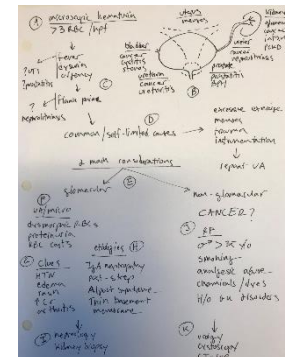 A microscopic hematuria
>3 RBC/hpf
fever
dysuria
urgency
?UTI
?prostatitis
C
Flank pain
?
nephrolithiasis
uterus
menses
bladder
cancer
cystitis
stones
urethra
cancer
urethritis
B
prostate
prostatitis
BPH
ureter
cancer
kidney
cancer
PCKD
D
common/self-limited causes
excessive exercise
menses
trauma
instrumentation
repeat UA
2 main considerations
E
glomerular
non-glomerular
CANCER?
F
UA/micro
dysmorphic RBCs
proteinuria
RBC casts
G Clues
HTN
edema
rash
↑Cr
arthritis
etiologies H
IgA nephropathy
post-strep
Alport syndrome
Thin basement
membrane
I nephrology
kidney biopsy
J RF
♂ > 35 y/o
smoking
analgesic abuse
chemicals/dyes
H/o GU disorders
K
urology
cystoscopy